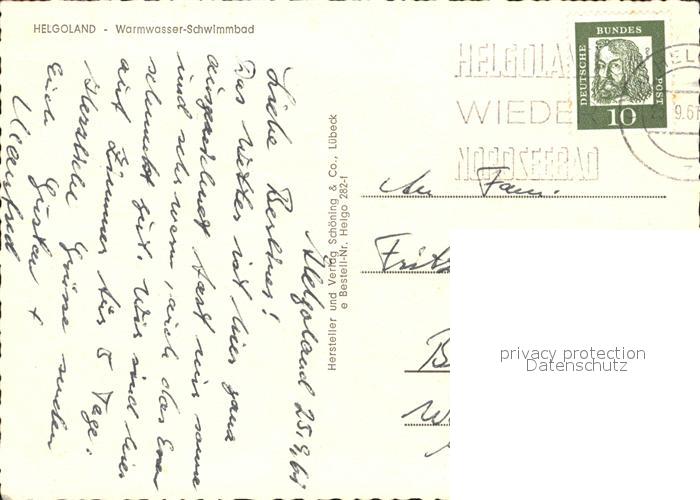 HELGOLAND - Warmwasser-Schwimmbad
Helgoland 25.9.61
Liebe Berliner!
Das Wetter ist hier ganz
ausgezeichnet fast nur sonne
und sehr warm, auch das Essen
schmeckt gut. Wir sind hier
auf Zimmer für 5 Tage.
Herzliche Grüsse senden
Euch
Manfred
Hersteller und Verlag Schöning & Co., Lübeck
e Bestell-Nr. Helgo 282-f
HELGOLA
WIEDE
NORDSEEBAD
DEUTSCHE BUNDES POST
10
HELGO
9.61
An Fam.
Fritz
B
privacy protection
Datenschutz